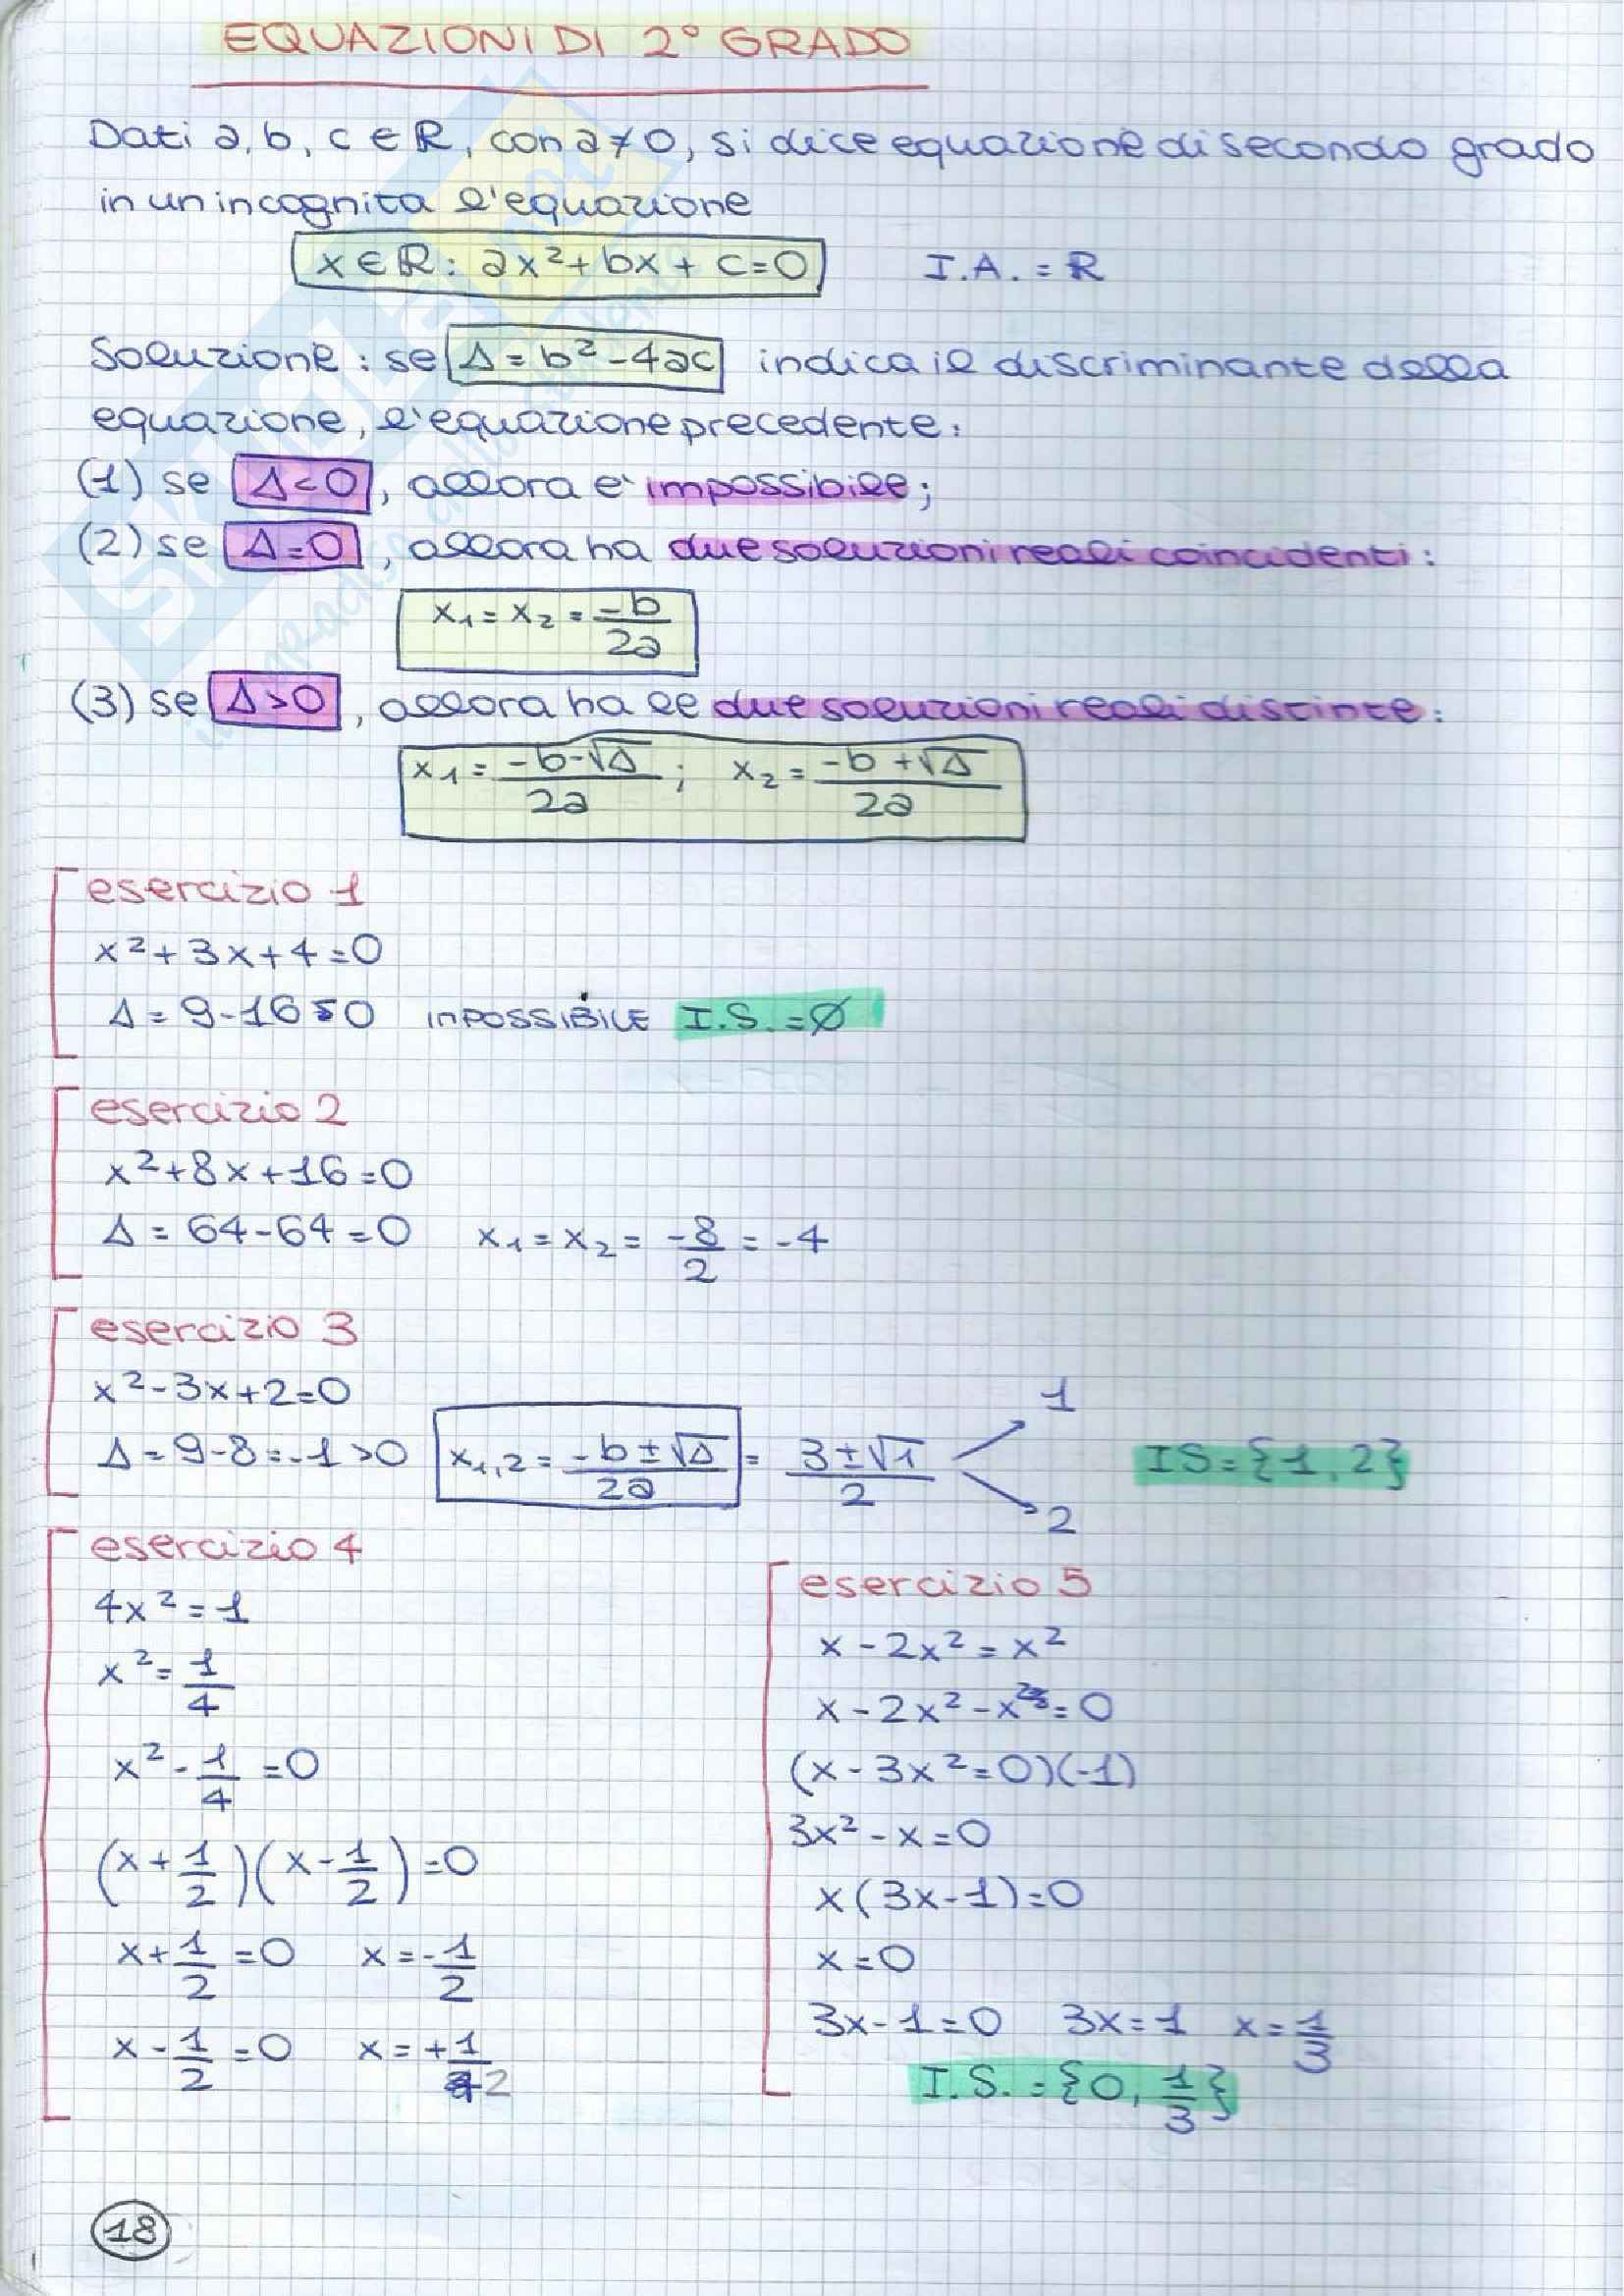 EQUAZIONI DI 2° GRADO
Dati a, b, c ∈ R, con a≠0, si dice equazione di secondo grado
in un incognita l'equazione
x∈R: ax²+bx+c=0 I.A. = R
Soluzione: se Δ = b²-4ac indica il discriminante della
equazione, l'equazione precedente:
(1) se Δ<0, allora e' impossibile;
(2) se Δ=0, allora ha due soluzioni reali coincidenti:
x₁ = x₂ = -b/2a
(3) se Δ>0, allora ha le due soluzioni reali distinte:
x₁ = (-b-√Δ)/2a ; x₂ = (-b+√Δ)/2a
esercizio 1
x²+3x+4=0
Δ = 9-16<0 IMPOSSIBILE I.S. = Ø
esercizio 2
x²+8x+16=0
Δ = 64-64=0 x₁ = x₂ = -8/2 = -4
esercizio 3
x²-3x+2=0
Δ = 9-8=1>0 x₁,₂ = (-b±√Δ)/2a = (3±√1)/2 1 2 IS={1,2}
esercizio 4
4x²=1
x²=1/4
x²-1/4=0
(x+1/2)(x-1/2)=0
x+1/2=0 x=-1/2
x-1/2=0 x=+1/2
esercizio 5
x-2x²=x²
x-2x²-x²=0
(x-3x²=0)(-1)
3x²-x=0
x(3x-1)=0
x=0
3x-1=0 3x=1 x=1/3
I.S.={0, 1/3}
18